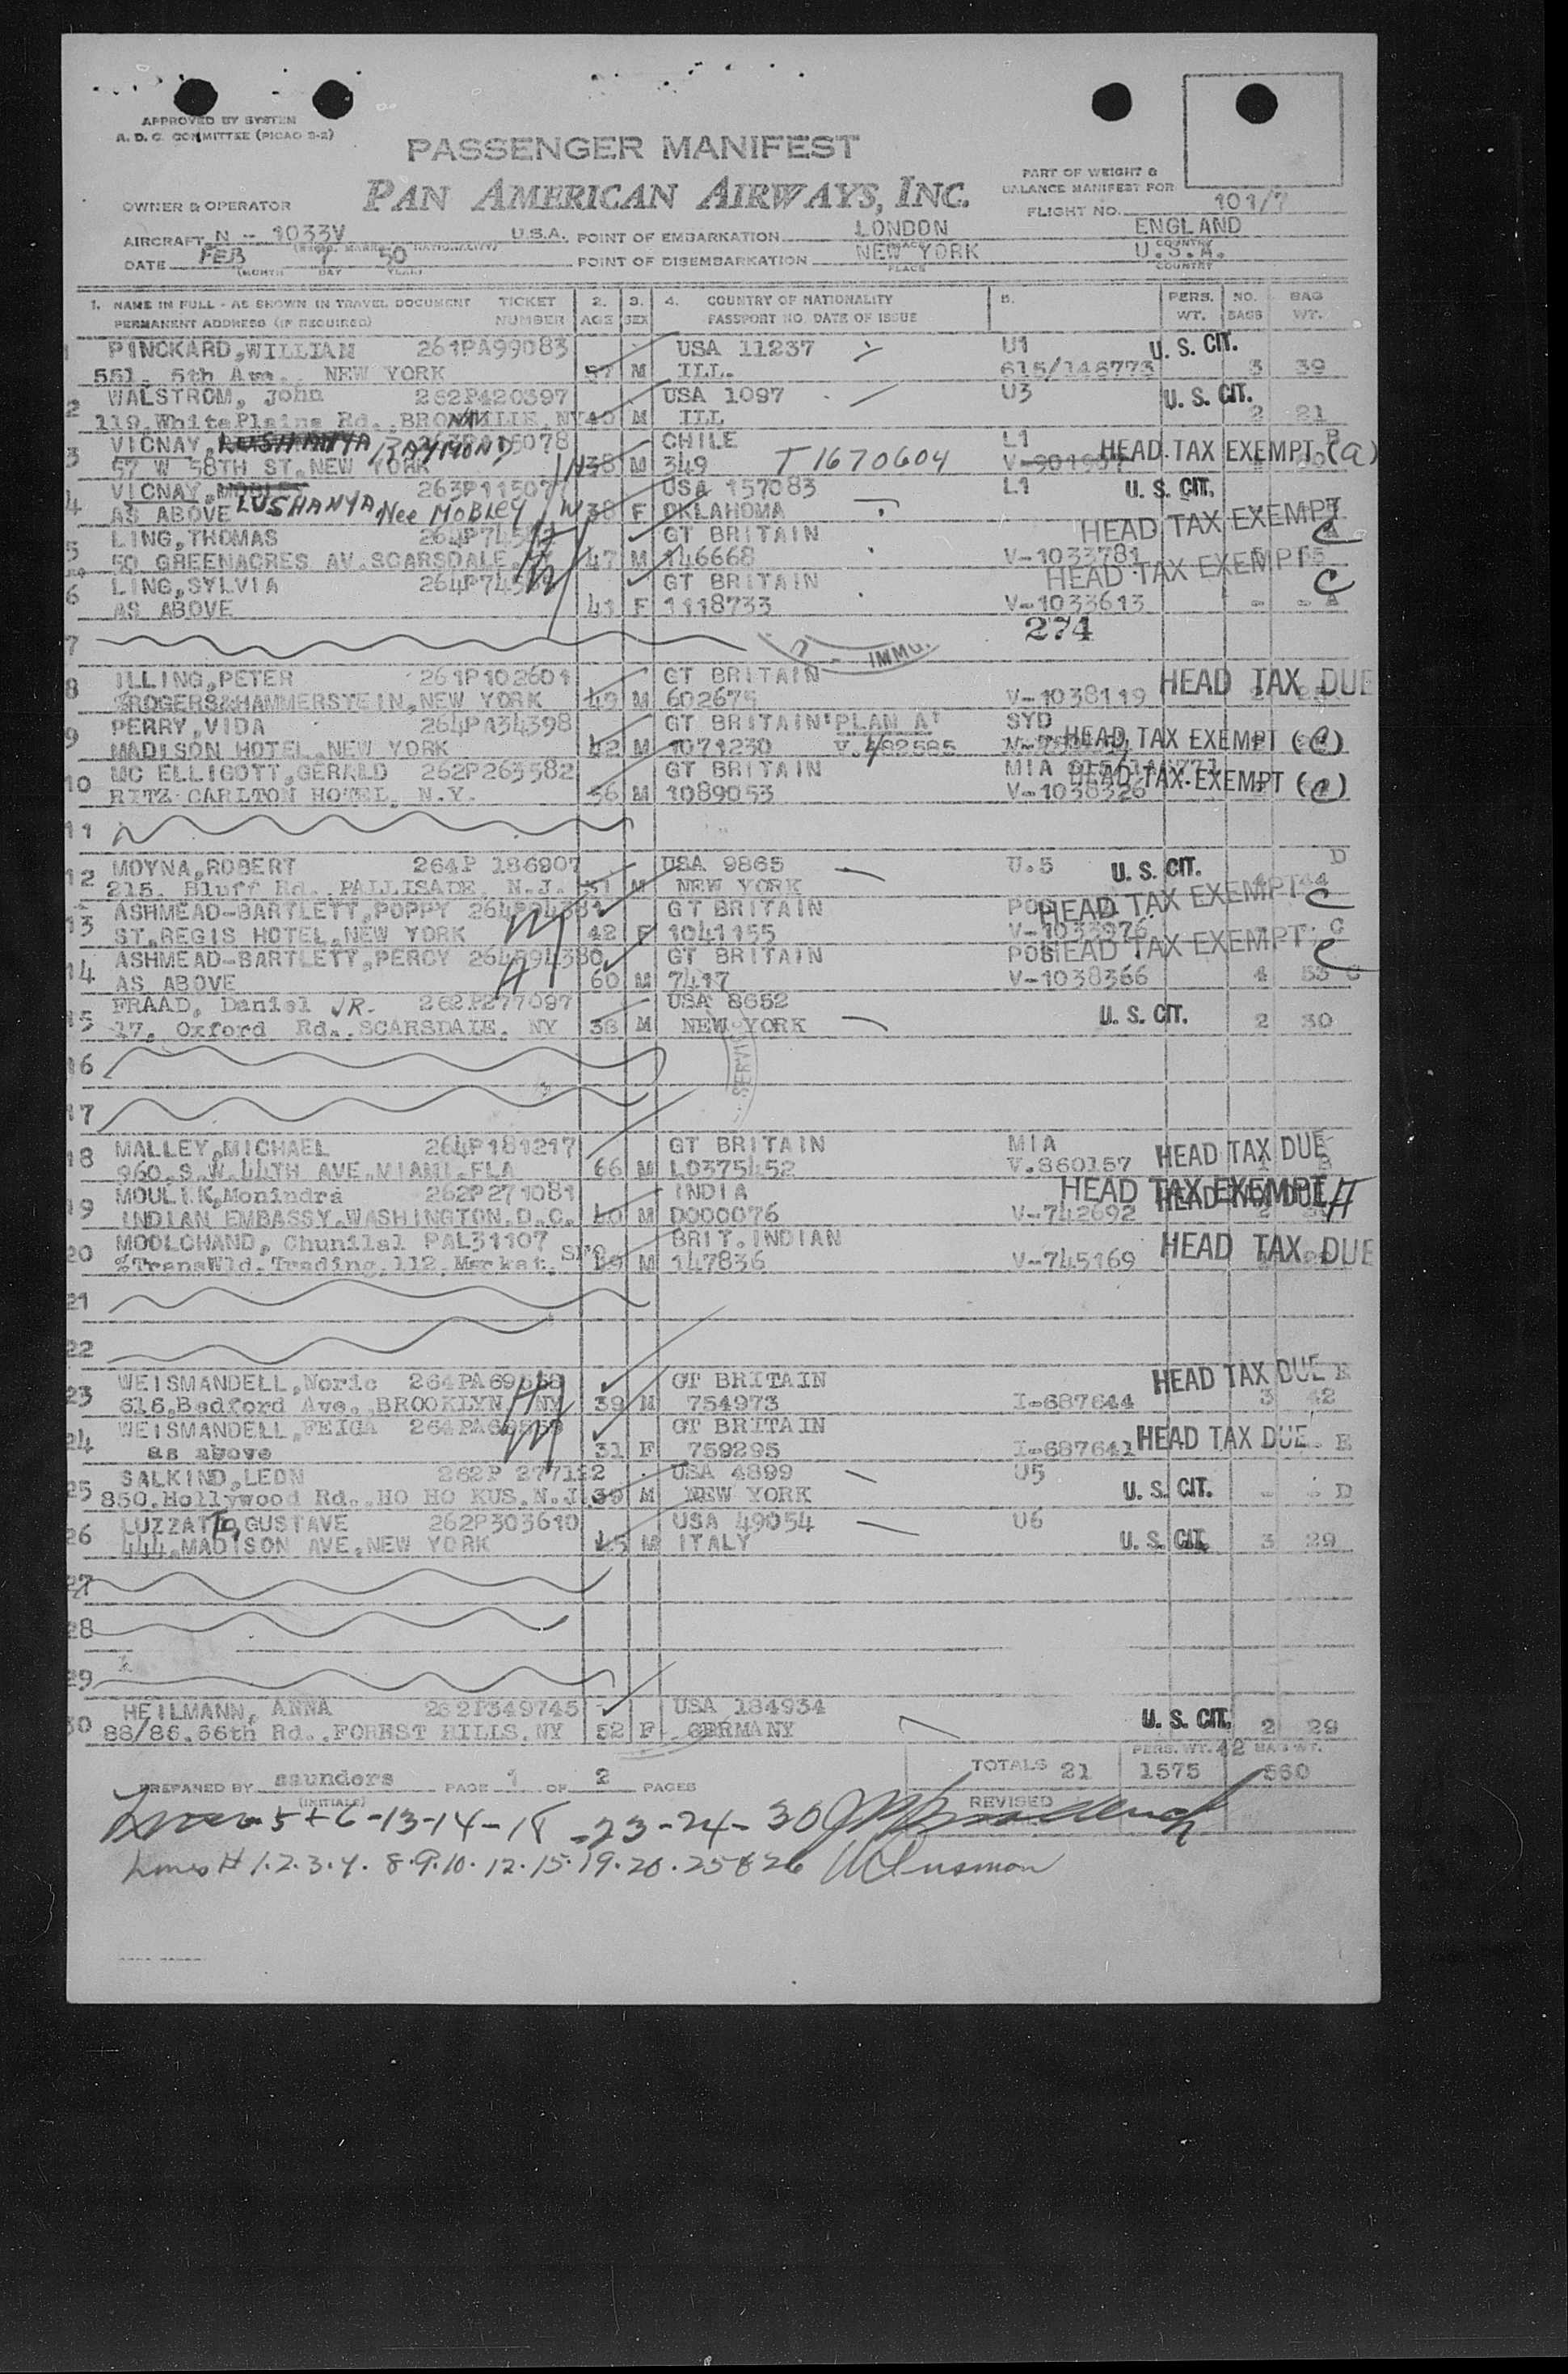 APPROVED BY SYSTEM
A. D. C. COMMITTEE (PICAO 2-2)
PASSENGER MANIFEST
PAN AMERICAN AIRWAYS, INC.
PART OF WEIGHT &
BALANCE MANIFEST FOR
OWNER & OPERATOR
FLIGHT NO. 101/7
AIRCRAFT N - 1033V U.S.A. POINT OF EMBARKATION LONDON ENGLAND
DATE FEB 7 50 POINT OF DISEMBARKATION NEW YORK U.S.A.
(MONTH DAY YEAR) PLACE COUNTRY
1. NAME IN FULL - AS SHOWN IN TRAVEL DOCUMENT TICKET 2. 3. 4. COUNTRY OF NATIONALITY 5. PERS. NO. BAG
PERMANENT ADDRESS (IF REQUIRED) NUMBER AGE SEX PASSPORT NO. DATE OF ISSUE WT. BAGS WT.
1 PINCKARD,WILLIAM 261PA99083 USA 11237 U1 U. S. CIT.
551. 5th Ave.. NEW YORK 57 M ILL. 615/146773 3 39
2 WALSTROM, John 262P420397 USA 1097 U3 U. S. CIT.
119.White Plains Rd. NY 40 M ILL 2 21
3 VICNAY, RAYMOND CHILE L1 HEAD TAX EXEMPT (a)
57 W 58TH ST.NEW YORK 38 M 349 T1670604
4 VICNAY, LUSHANYA Nee MOBLEY USA 157083 L1 U. S. CIT.
AS ABOVE 38 F OKLAHOMA
5 LING,THOMAS GT BRITAIN HEAD TAX EXEMPT C
50 GREENACRES AV.SCARSDALE. 47 M 146668 V-1033781
6 LING,SYLVIA GT BRITAIN HEAD TAX EXEMPT C
AS ABOVE 41 F 1118733 V-1033613 - - A
7 IMMG. 274
8 ILLING,PETER 261P102601 GT BRITAIN HEAD TAX DUE
%RODGERS&HAMMERSTEIN,NEW YORK 49 M 602675 V-1038119
9 PERRY,VIDA 264PA34398 GT BRITAIN 'PLAN A' SYD
MADISON HOTEL.NEW YORK 42 M 1071230 V.482585 HEAD TAX EXEMPT (C)
10 MC ELLIGOTT,GERALD 262P263582 GT BRITAIN MIA
RITZ CARLTON HOTEL. N.Y. 56 M 1089053 V-1038326 HEAD TAX EXEMPT (C)
11
12 MOYNA,ROBERT 264P 186907 USA 9865 U.5 U. S. CIT. D
215. Bluff Rd. PALLISADE. N.J. 51 M NEW YORK 44
13 ASHMEAD-BARTLETT,POPPY GT BRITAIN HEAD TAX EXEMPT C
ST.REGIS HOTEL.NEW YORK 42 F 1041155 V-1032976 C
14 ASHMEAD-BARTLETT,PERCY GT BRITAIN HEAD TAX EXEMPT C
AS ABOVE 60 M 7417 V-1038366 4 53 C
15 FRAAD, Daniel JR. 262P277097 USA 8652 U. S. CIT.
17. Oxford Rd..SCARSDALE. NY 38 M NEW YORK 2 30
16
17 SERVICE
18 MALLEY,MICHAEL 264P181217 GT BRITAIN MIA HEAD TAX DUE
960.S.W.44TH AVE.MIAMI.FLA 66 M L0375452 V.860157
19 MOULIK,Monindra 262P271081 INDIA HEAD TAX EXEMPT H
INDIAN EMBASSY.WASHINGTON.D.C. 40 M D000076 V-742692
20 MOOLCHAND, Chunilal PAL31107 BRIT.INDIAN HEAD TAX DUE
%TransWld.Trading.112 Market. SFO 49 M 147836 V-745169
21
22
23 WEISMANDELL,Noric GT BRITAIN HEAD TAX DUE E
616.Bedford Ave. BROOKLYN. NY 39 M 754973 I-687644 3 42
24 WEISMANDELL,FEIGA GT BRITAIN HEAD TAX DUE E
as above 31 F 759295 I-687641
25 SALKIND,LEON 262P 277122 USA 4899 U5 U. S. CIT.
850.Hollywood Rd..HO HO KUS.N.J. 39 M NEW YORK - - D
26 LUZZATTO,GUSTAVE 262P303610 USA 49054 U6 U. S. CIT.
444.MADISON AVE.NEW YORK 45 M ITALY 3 29
27
28
29
30 HEILMANN, ANNA 262P349745 USA 184934 U. S. CIT.
88/86.66th Rd..FOREST HILLS.NY 52 F GERMANY 2 29
PERS. WT. 42 BAG WT.
TOTALS 21 1575 560
PREPARED BY saunders PAGE 1 OF 2 PAGES
(INITIALS) REVISED
Lines 5+6-13-14-18-23-24-30
Lines # 1.2.3.4. 8.9.10. 12.15.19.20.25&26